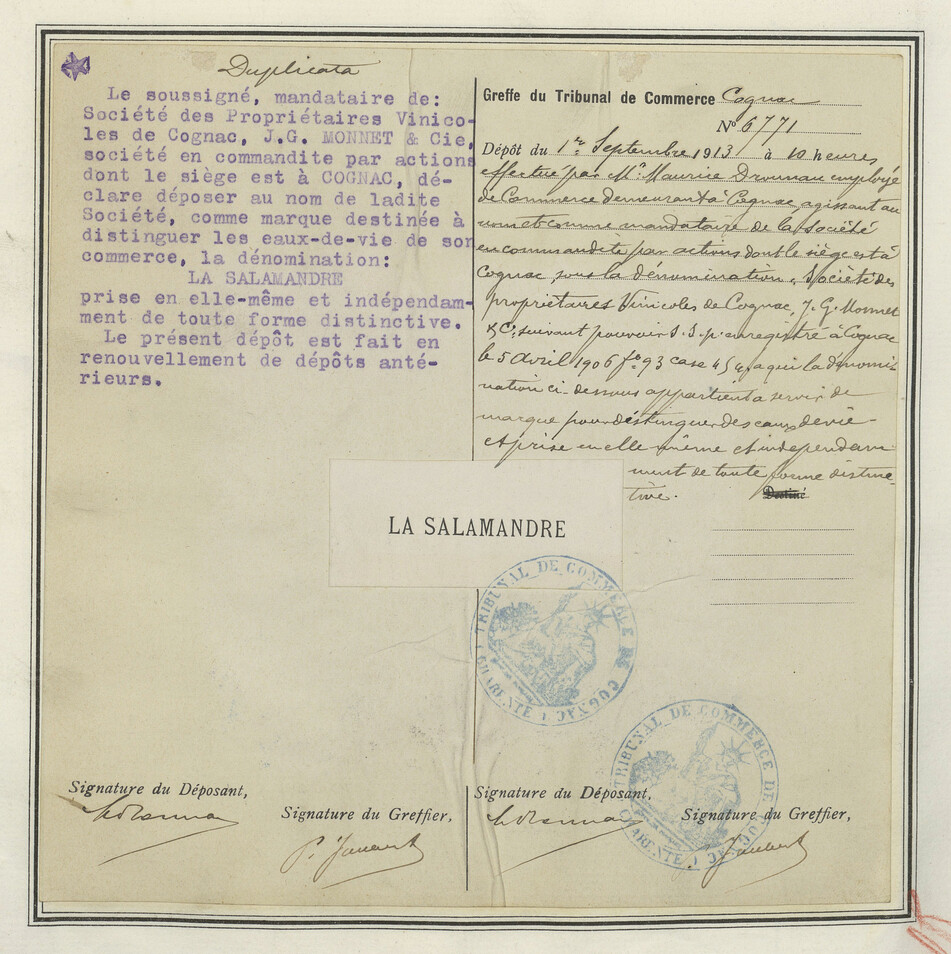 Duplicata
Le soussigné, mandataire de:
Société des Propriétaires Vinico-
les de Cognac, J.G. MONNET & Cie,
société en commandite par actions
dont le siège est à COGNAC, dé-
clare déposer au nom de ladite
Société, comme marque destinée à
distinguer les eaux-de-vie de son
commerce, la dénomination:
LA SALAMANDRE
prise en elle-même et indépendam-
ment de toute forme distinctive.
Le présent dépôt est fait en
renouvellement de dépôts anté-
rieurs.
Greffe du Tribunal de Commerce Cognac
N° 6771
Dépôt du 1er Septembre 1913 à 10 heures
effectué par Mr. Maurice employé
de Commerce demeurant à Cognac agissant au
nom et comme mandataire de la Société
en commandite par actions dont le siège est à
Cognac, sous la dénomination, Société des
propriétaires Vinicoles de Cognac, J. G. Monnet
& Cie, suivant pouvoir S. S. p. enregistré à Cognac
le 5 Avril 1906 fo 93 case la dénomi-
nation ci-dessous appartient a servir de
marque pour distinguer des eaux de vie
et prise en elle même et independam
ment de toute forme distinc-
tive. Destiné
LA SALAMANDRE
TRIBUNAL DE COMMERCE DE COGNAC
CHARENTE
TRIBUNAL DE COMMERCE DE COGNAC
CHARENTE
Signature du Déposant,
Signature du Greffier,
Signature du Déposant,
Signature du Greffier,